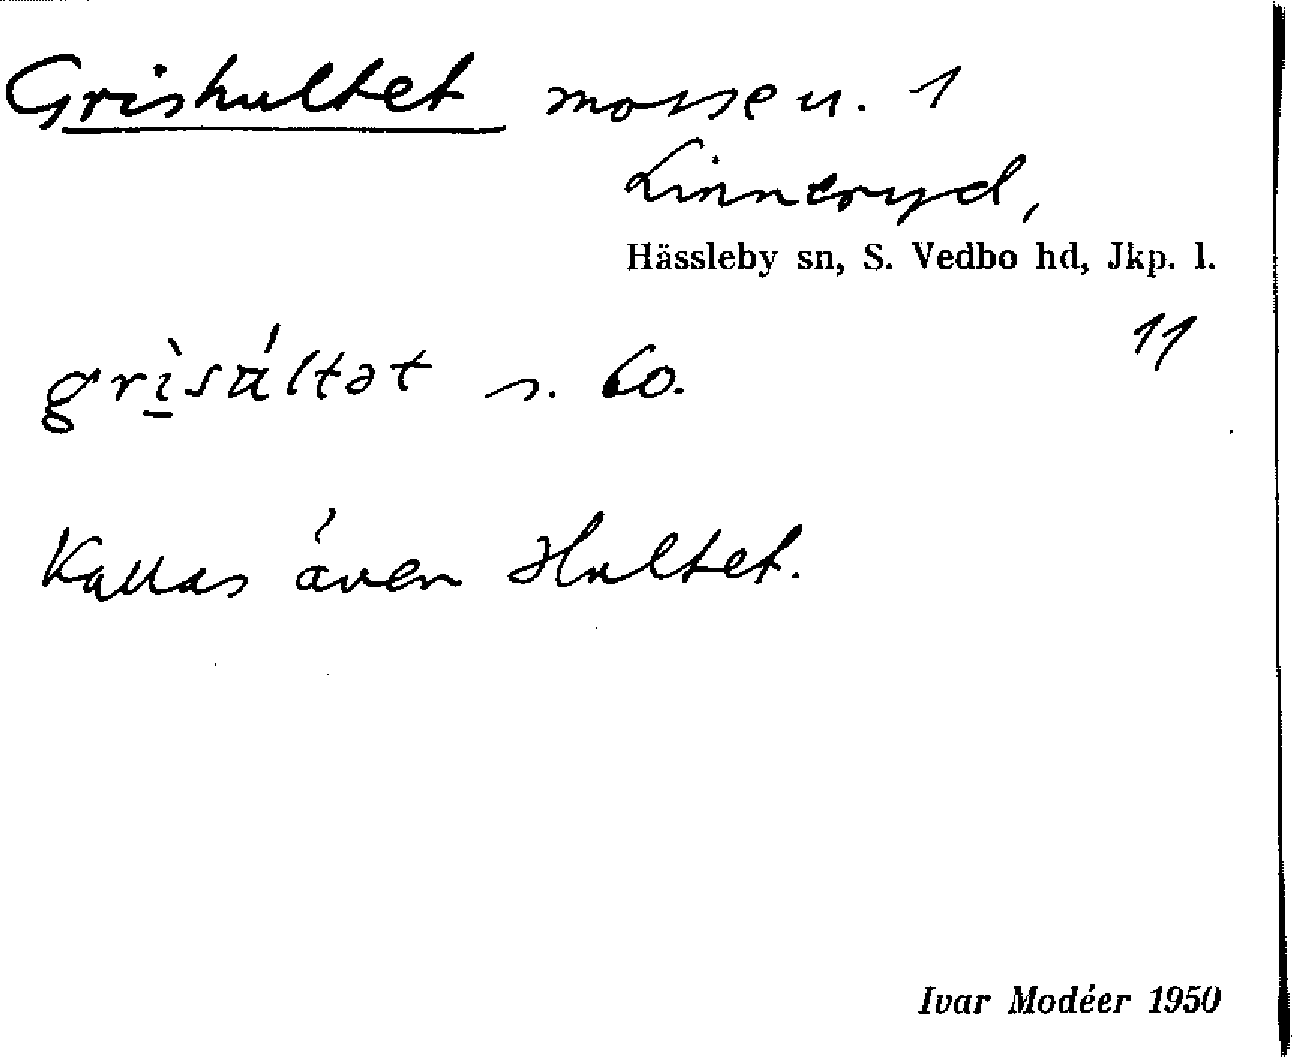 Grishultet mosse u. 1
Linneryd,
Hässleby sn, S. Vedbo hd, Jkp. l.
11
grìsúltət s. 60.
Kallas även Hultet.
Ivar Modéer 1950